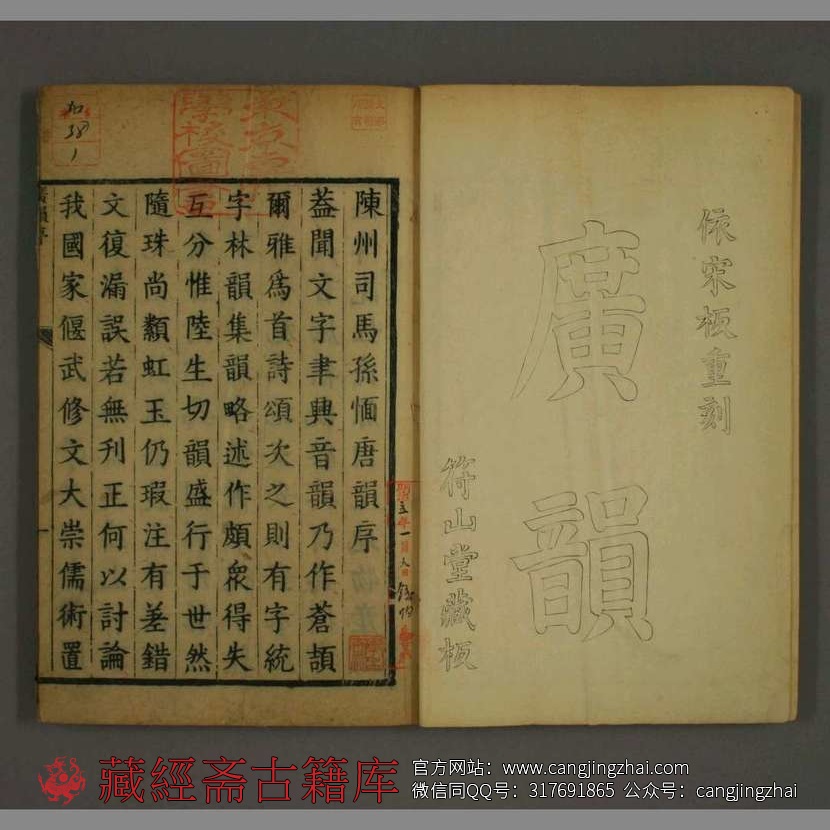 依宋板重刻
廣韻
符山堂藏板
陳州司馬孫愐唐韻序
蓋聞文字聿興音韻乃作蒼頡
爾雅爲首詩頌次之則有字統
字林韻集韻略述作頗衆得失
互分惟陸生切韻盛行于世然
隨珠尚纇虹玉仍瑕注有差錯
文復漏誤若無刋正何以討論
我國家偃武修文大崇儒術置
藏經斋古籍库
官方网站：www.cangjingzhai.com
微信同QQ号：317691865 公众号：cangjingzhai